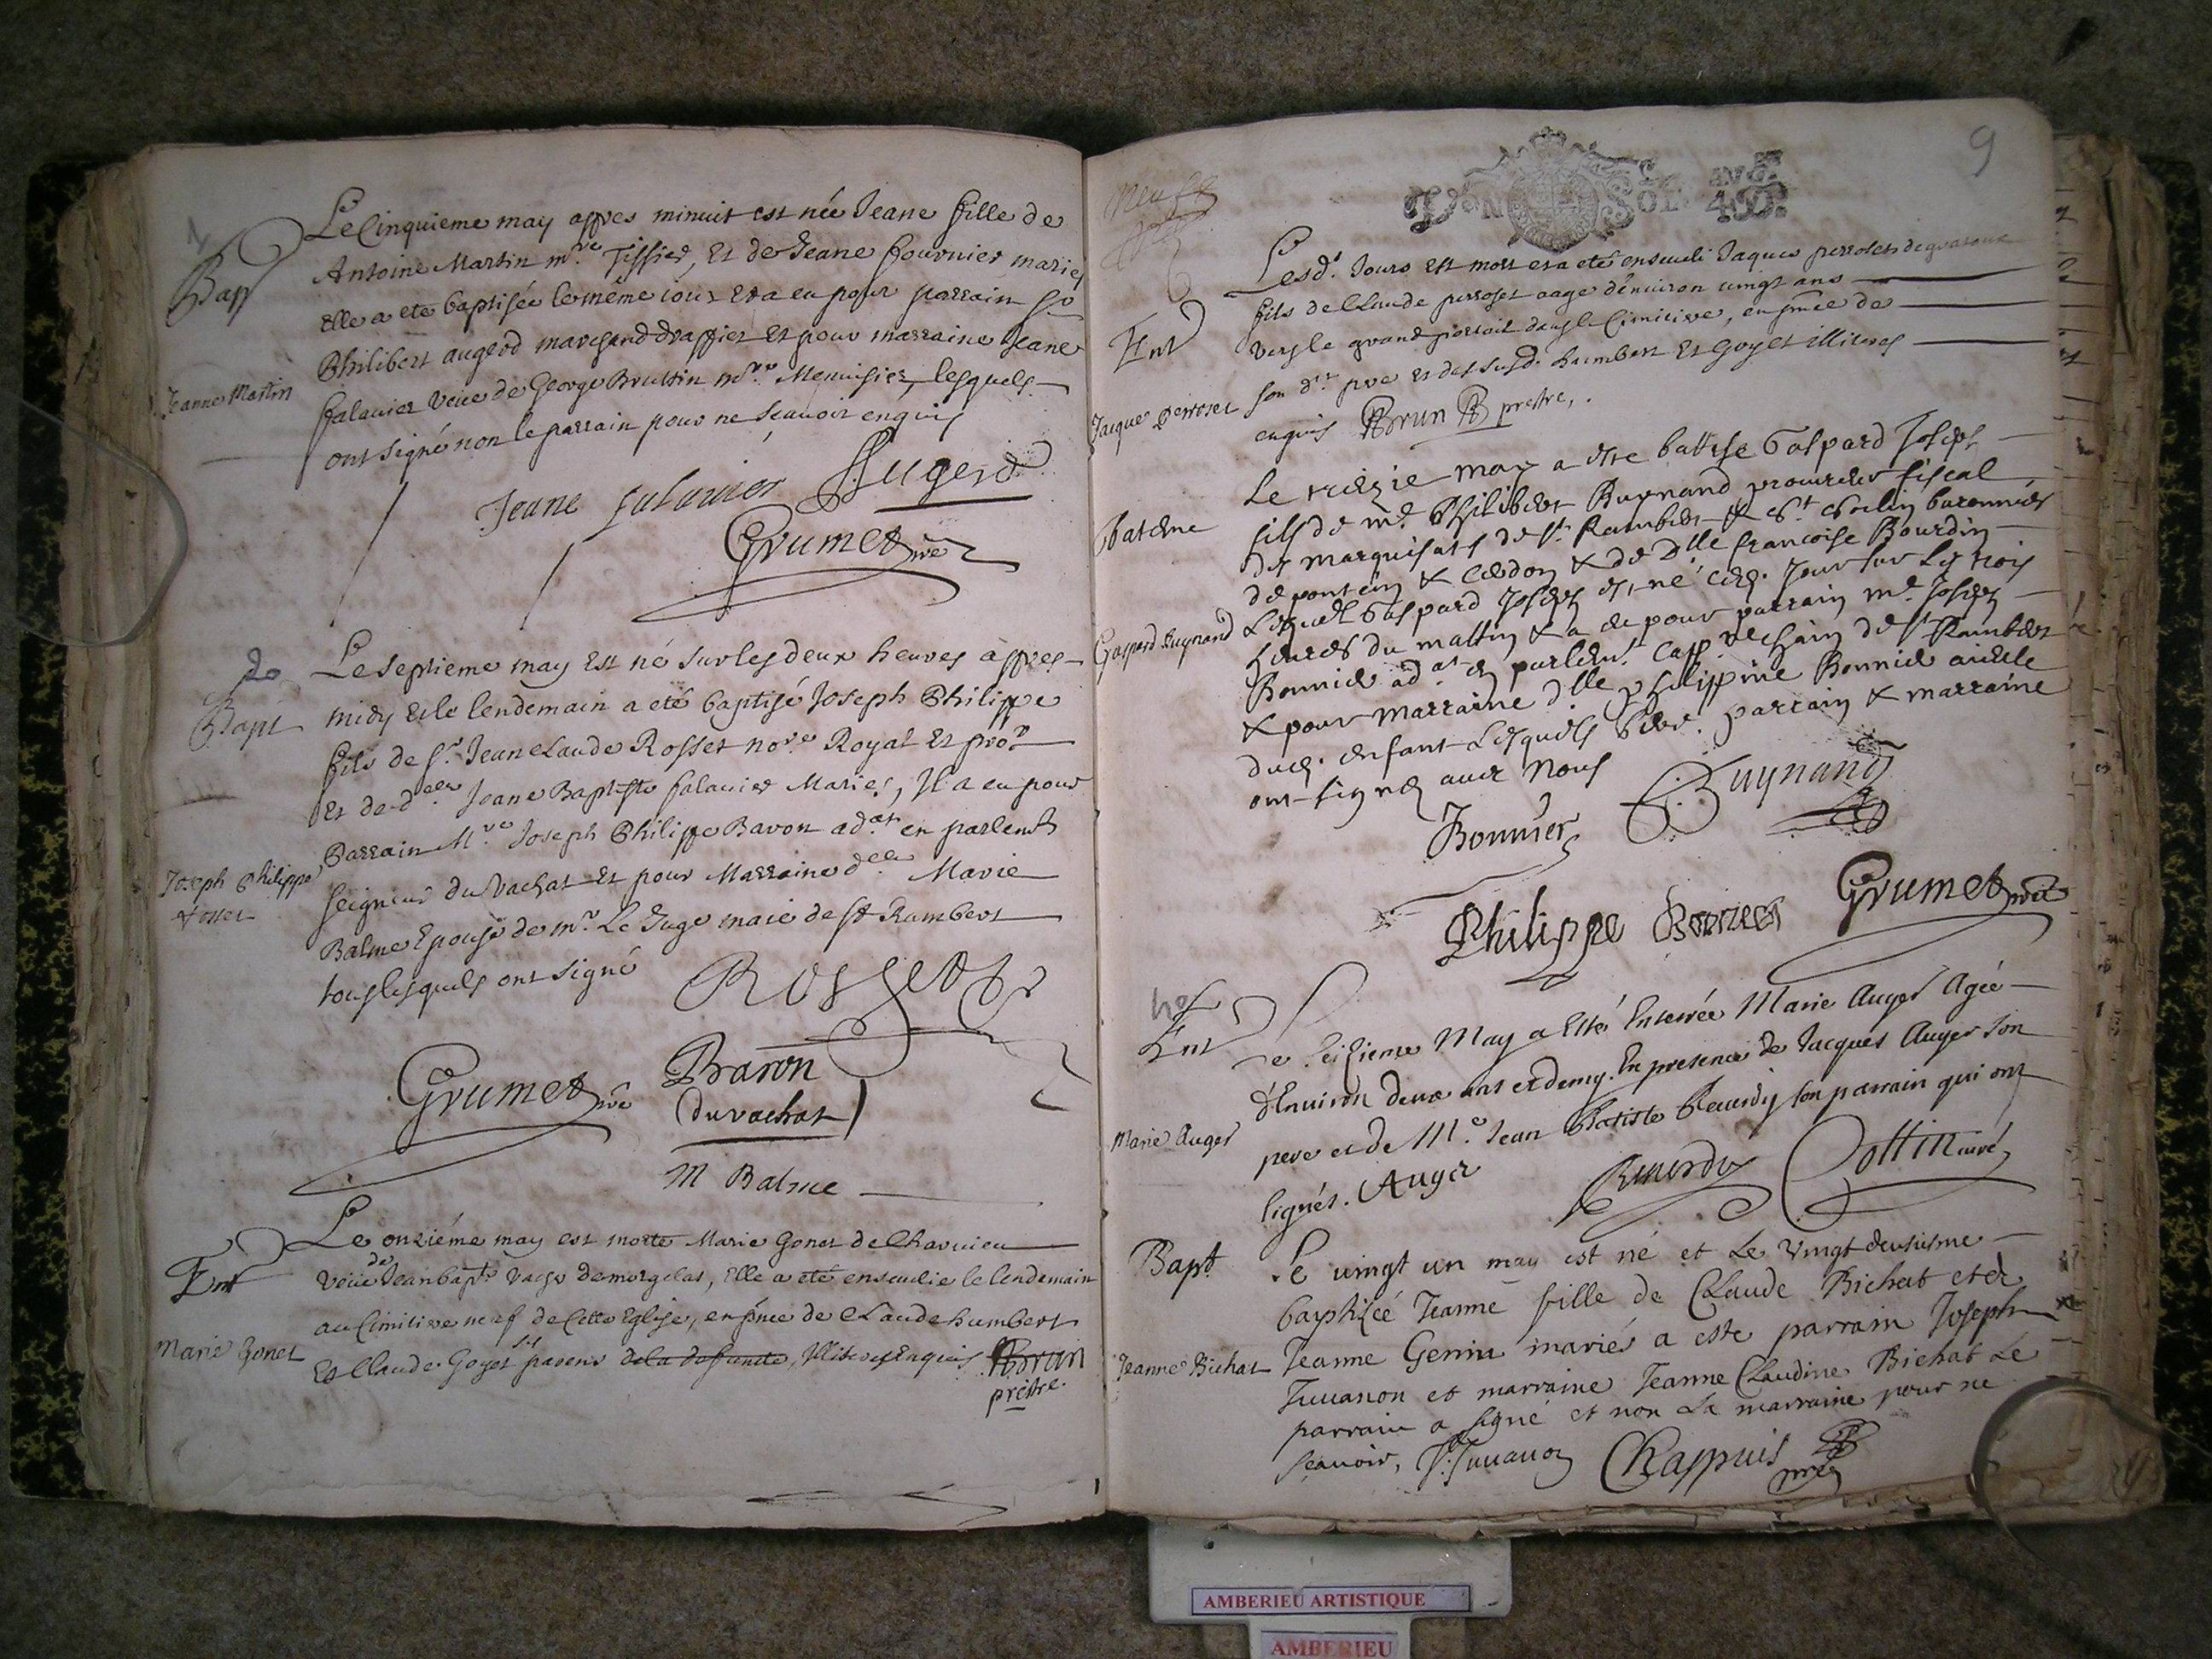 Le Cinquieme may appres minuit est née Jeane fille de
Bap
Antoine Martin m.re Tissier, Et de Jeane fournier maries
Elle a eté baptisée le même iour Et a eu pour parrain Sr
Philibert augerd marchand drappier Et pour marraine Jeane
Jeanne Martin
falavier veüe de George Brussin m.re Menuisier, lesquels
ont signé non le parrain pour ne scauoir enquis
Jeane falavier Augerd
Grumet pre
20
Le septieme may Est né sur les deux heures appres
Bapt
midy Et le lendemain a eté baptisé Joseph Philippe
fils de Sr. Jean Claude Rosset no.re Royal Et pro.r
Et de d.elle Jeane Baptiste falavier Maries, Il a eu pour
Parrain M.re Joseph Philippe Baron ad.at en parlem.t
Joseph Philippe
Rosset
Seigneur du Vachat Et pour Marraine d.elle Marie
Balme Epouse de m.r Le Juge maie de St Rambert
tous lesquels ont signé
Rosset
Grumet pre
Baron
duvachat
M Balme
Le onziéme may est morte Marie Gonet de Charvieu
Ent
veüe de Jean bapt.e vache de morgelas, Elle a eté enseuelie le lendemain
au Cimitiere neuf de Cette Eglise, en p̃nce de Claude humbert
Marie Gonet
Et Claude Goyet parens de la deffuncte, Illiteres Enquis Brun
prestre.
9
neuf
SOL 4 D.
Lesd.t Jours Est mort et a eté enseueli Jaques perroset de
Ent
fils de Claude perroset aage d'enuiron vingt ans
vers le grand portail dans le Cimitiere, en p̃nce de
Jacque Perroset
son d.t pere Et des susd. humbert Et Goyet illiteres
enquis Brun prestre,.
Le may a este battise Gaspard Joseph
Bateme
fils de m.e Philibert Buynand procureur fiscal
des marquisats de St. Rambert & St baronnies
de pont & Cerdon & de d.lle francoise Bourdin
Gaspard Buynand
Lequel Gaspard Joseph est né Jour sur les trois
heures du mattin & a eu pour parrain m.e Joseph
Bonnier ad.at en parlem.t de St Rambert
& pour marraine d.lle philippine Bonnier aieule
dud. enfant Lesquels parrain & marraine
ont signé avec Nous
Buynand
Bonnier
Philippe Bonnier Grumet pre
Ent
Le seisieme May a Esté Enterrée Marie Auger Agée
d'Enuiron deux ans et demy. En presence de Jacques Auger son
Marie Auger
pere et de M.e Jean Batiste Reverdy son parrain qui ont
signés. Auger Reverdy Cottin curé
Bapt
Le vingt un may est né et Le vingt deusisme
baptisée Jeanne fille de Claude Bichat et de
Jeanne Bichat
Jeanne Genin mariés a este parrain Joseph
Juvanon et marraine Jeanne Claudine Bichat Le
parrain a signé et non La marraine pour ne
sçauoir, J. Juvanon Chappuis pre
AMBERIEU ARTISTIQUE
AMBERIEU